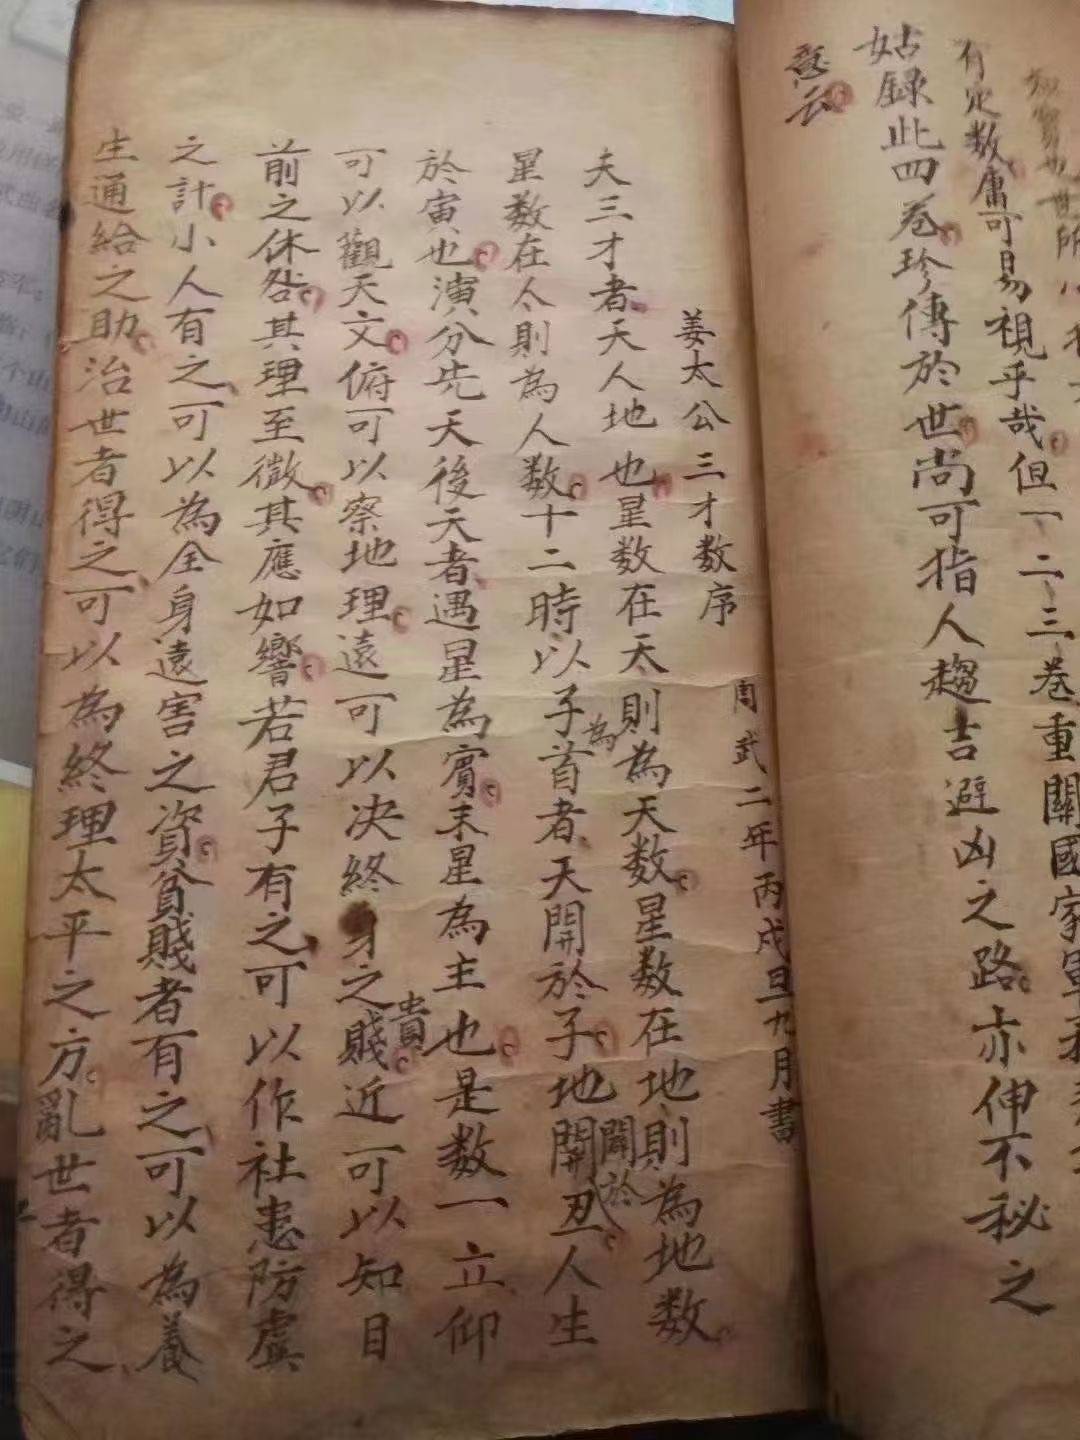 有定数庸可易視乎哉但一二三卷重關國家軍
姑錄此四卷珍傳於世尚可指人趨吉避凶之路亦伸不秘之
意云
姜太公三才数序
周武二年丙戍旦九月書
夫三才者天人地也星数在天則為天数星数在地則為地数
星数在人則為人数十二時以子為首者天開於子地開闢於丑人生
於寅也演分先天後天者遇星為賓末星為主也是数一立仰
可以觀天文俯可以察地理遠可以决終身之貴賤近可以知目
前之休咎其理至微其應如響若君子有之可以作社患防虞
之計小人有之可以為全身遠害之資貧賤者有之可以為養
生通給之助治世者得之可以為終理太平之方亂世者得之